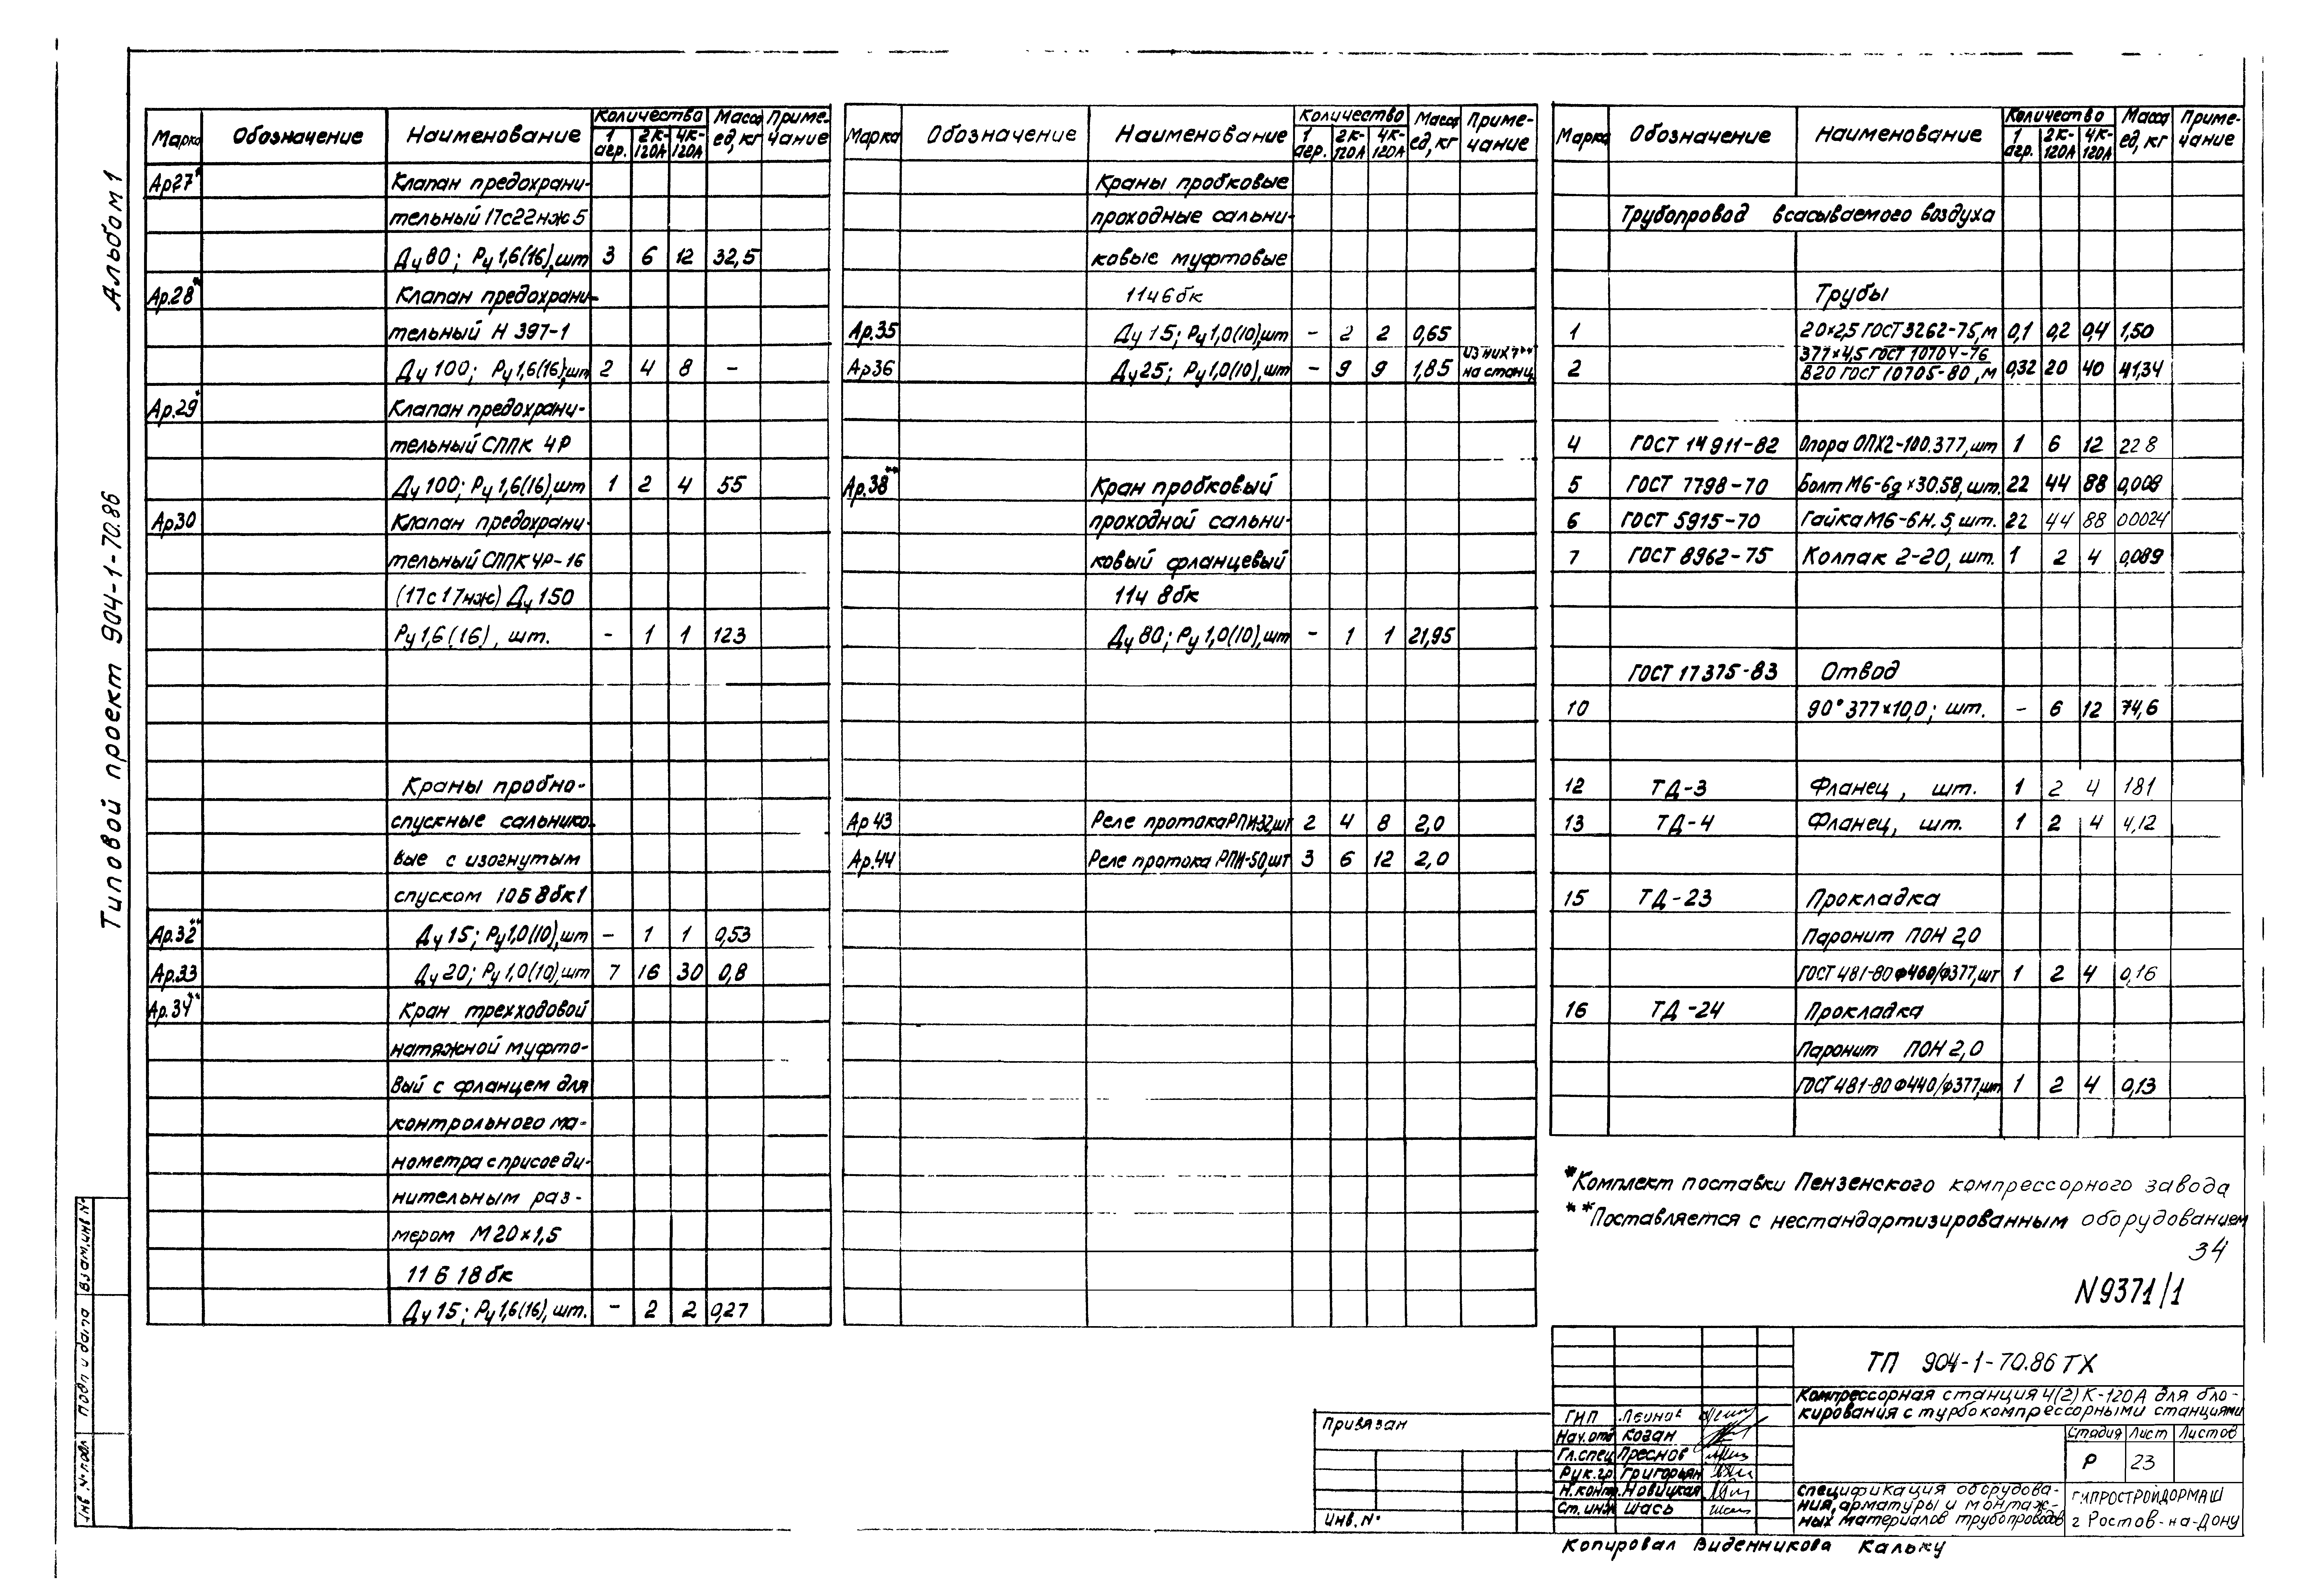 Альбом 1
Типовой проект 904-1-70.86
Взам.инв N°
Подп и дата
Инв. N° подл
Марка Обозначение Наименование Количество Масса ед, кг Приме-чание
1 агр. 2К-120А 4К-120А
Ар27* Клапан предохрани-
тельный 17с22нж5
Ду 80; Ру 1,6(16),шт 3 6 12 32,5
Ар.28* Клапан предохрани-
тельный Н 397-1
Ду 100; Ру 1,6(16),шт 2 4 8 -
Ар.29* Клапан предохрани-
тельный СППК 4Р
Ду 100; Ру 1,6(16),шт 1 2 4 55
Ар30 Клапан предохрани-
тельный СППК4Р-16
(17с17нж) Ду 150
Ру 1,6(16), шт. - 1 1 123
Краны пробно-
спускные сальнико-
вые с изогнутым
спуском 10Б8бк1
Ар.32** Ду 15; Ру1,0(10),шт - 1 1 0,53
Ар.33 Ду 20; Ру 1,0(10),шт 7 16 30 0,8
Ар.34** Кран трехходовой
натяжной муфто-
вый с фланцем для
контрольного ма-
нометра с присоеди-
нительным раз-
мером М20×1,5
11 Б 18бк
Ду 15; Ру 1,6(16), шт. - 2 2 0,27
Марка Обозначение Наименование Количество Масса ед, кг Приме-чание
1 агр. 2К-120А 4К-120А
Краны пробковые
проходные сальни-
ковые муфтовые
11ч6бк
Ар.35 Ду 15; Ру 1,0(10),шт - 2 2 0,65
Ар36 Ду25; Ру 1,0(10), шт - 9 9 1,85 из них 7** на станц.
Ар.38** Кран пробковый
проходной сальни-
ковый фланцевый
11ч 8бк
Ду 80; Ру 1,0(10),шт - 1 1 21,95
Ар 43 Реле протока РПИ-32,шт 2 4 8 2,0
Ар.44 Реле протока РПИ-50,шт 3 6 12 2,0
Марка Обозначение Наименование Количество Масса ед, кг Приме-чание
1 агр. 2К-120А 4К-120А
Трубопровод всасываемого воздуха
Трубы
1 20×2,5 ГОСТ 3262-75,м 0,1 0,2 0,4 1,50
377×4,5 ГОСТ 10704-76
2 В20 ГОСТ 10705-80, м 0,32 20 40 41,34
4 ГОСТ 14911-82 Опора ОПХ2-100.377,шт 1 6 12 22 8
5 ГОСТ 7798-70 Болт М6-6g×30.58, шт. 22 44 88 0,008
6 ГОСТ 5915-70 Гайка М6-6Н.5, шт. 22 44 88 0,0024
7 ГОСТ 8962-75 Колпак 2-20, шт. 1 2 4 0,089
ГОСТ 17375-83 Отвод
10 90° 377×10,0; шт. - 6 12 74,6
12 ТД-3 Фланец, шт. 1 2 4 181
13 ТД-4 Фланец, шт. 1 2 4 4,12
15 ТД-23 Прокладка
Паронит ПОН 2,0
ГОСТ 481-80 Ф460/Ф377,шт 1 2 4 0,16
16 ТД-24 Прокладка
Паронит ПОН 2,0
ГОСТ 481-80 Ф440/Ф377,шт 1 2 4 0,13
*Комплект поставки Пензенского компрессорного завода
**Поставляется с нестандартизированным оборудованием
34
N9371/1
Привязан
Инв. N°
ТП 904-1-70.86 ТХ
Компрессорная станция 4(2)К-120А для бло-
кирования с турбокомпрессорными станциями
ГИП
Нач.отд Коган
Гл.спец Преснов
Рук.гр. Григорьян
Н.контр. Новицкая
Ст.инж Шась
Стадия Лист Листов
Р 23
Спецификация оборудова-
ния, арматуры и монтаж-
ных материалов трубопроводов
ГИПРОСТРОЙДОРМАШ
г Ростов-на-Дону
Копировал Виденникова Кальку